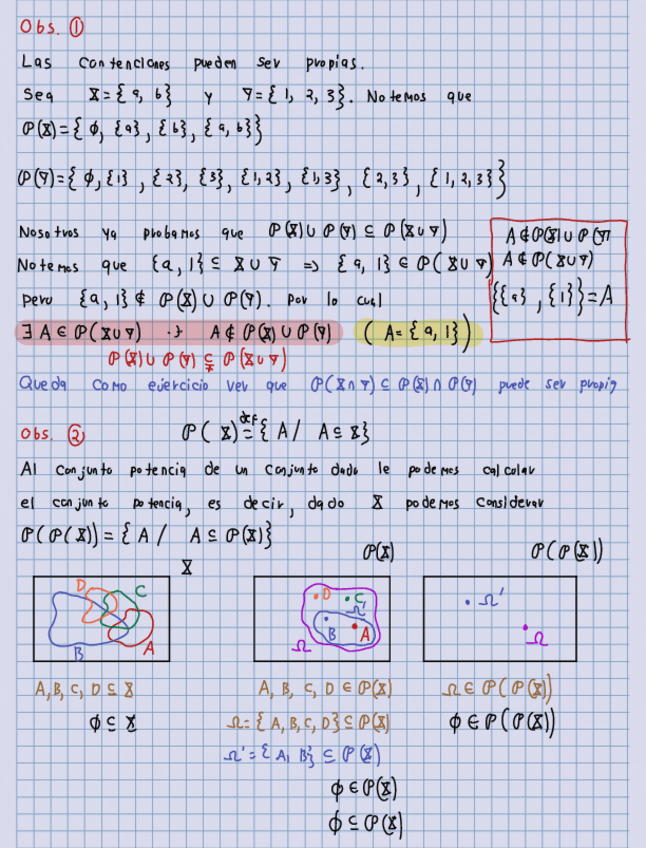 Obs. ①
Las contenciones pueden ser propias.
Sea X={a, b} y Y={1, 2, 3}. Notemos que
P(X)={ϕ, {a}, {b}, {a, b}}
P(Y)={ϕ, {1}, {2}, {3}, {1,2}, {1,3}, {2,3}, {1,2,3}}
Nosotros ya probamos que P(X)∪P(Y) ⊆ P(X∪Y)
Notemos que {a, 1} ⊆ X∪Y => {a, 1} ∈ P(X∪Y)
pero {a, 1} ∉ P(X) ∪ P(Y). Por lo cual
∃ A ∈ P(X∪Y) ·ɜ· A ∉ P(X) ∪ P(Y) (A={a, 1})
P(X) ∪ P(Y) ⊊ P(X∪Y)
A∉P(X)∪P(Y)
A∉P(X∪Y)
{{a}, {1}}=A
Queda como ejercicio ver que P(X∩Y) ⊆ P(X)∩P(Y) puede ser propia
Obs. ② P(X) def= {A / A⊆X}
Al conjunto potencia de un conjunto dado le podemos calcular
el conjunto potencia, es decir, dado X podemos considerar
P(P(X)) = {A / A ⊆ P(X)}
X P(X) P(P(X))
D C B A
D C Ω' B A Ω
Ω' Ω
A, B, C, D ⊆ X A, B, C, D ∈ P(X) Ω ∈ P(P(X))
ϕ ⊆ X Ω={A, B, C, D} ⊆ P(X) ϕ ∈ P(P(X))
Ω'={A, B} ⊆ P(X)
ϕ ∈ P(X)
ϕ ⊆ P(X)